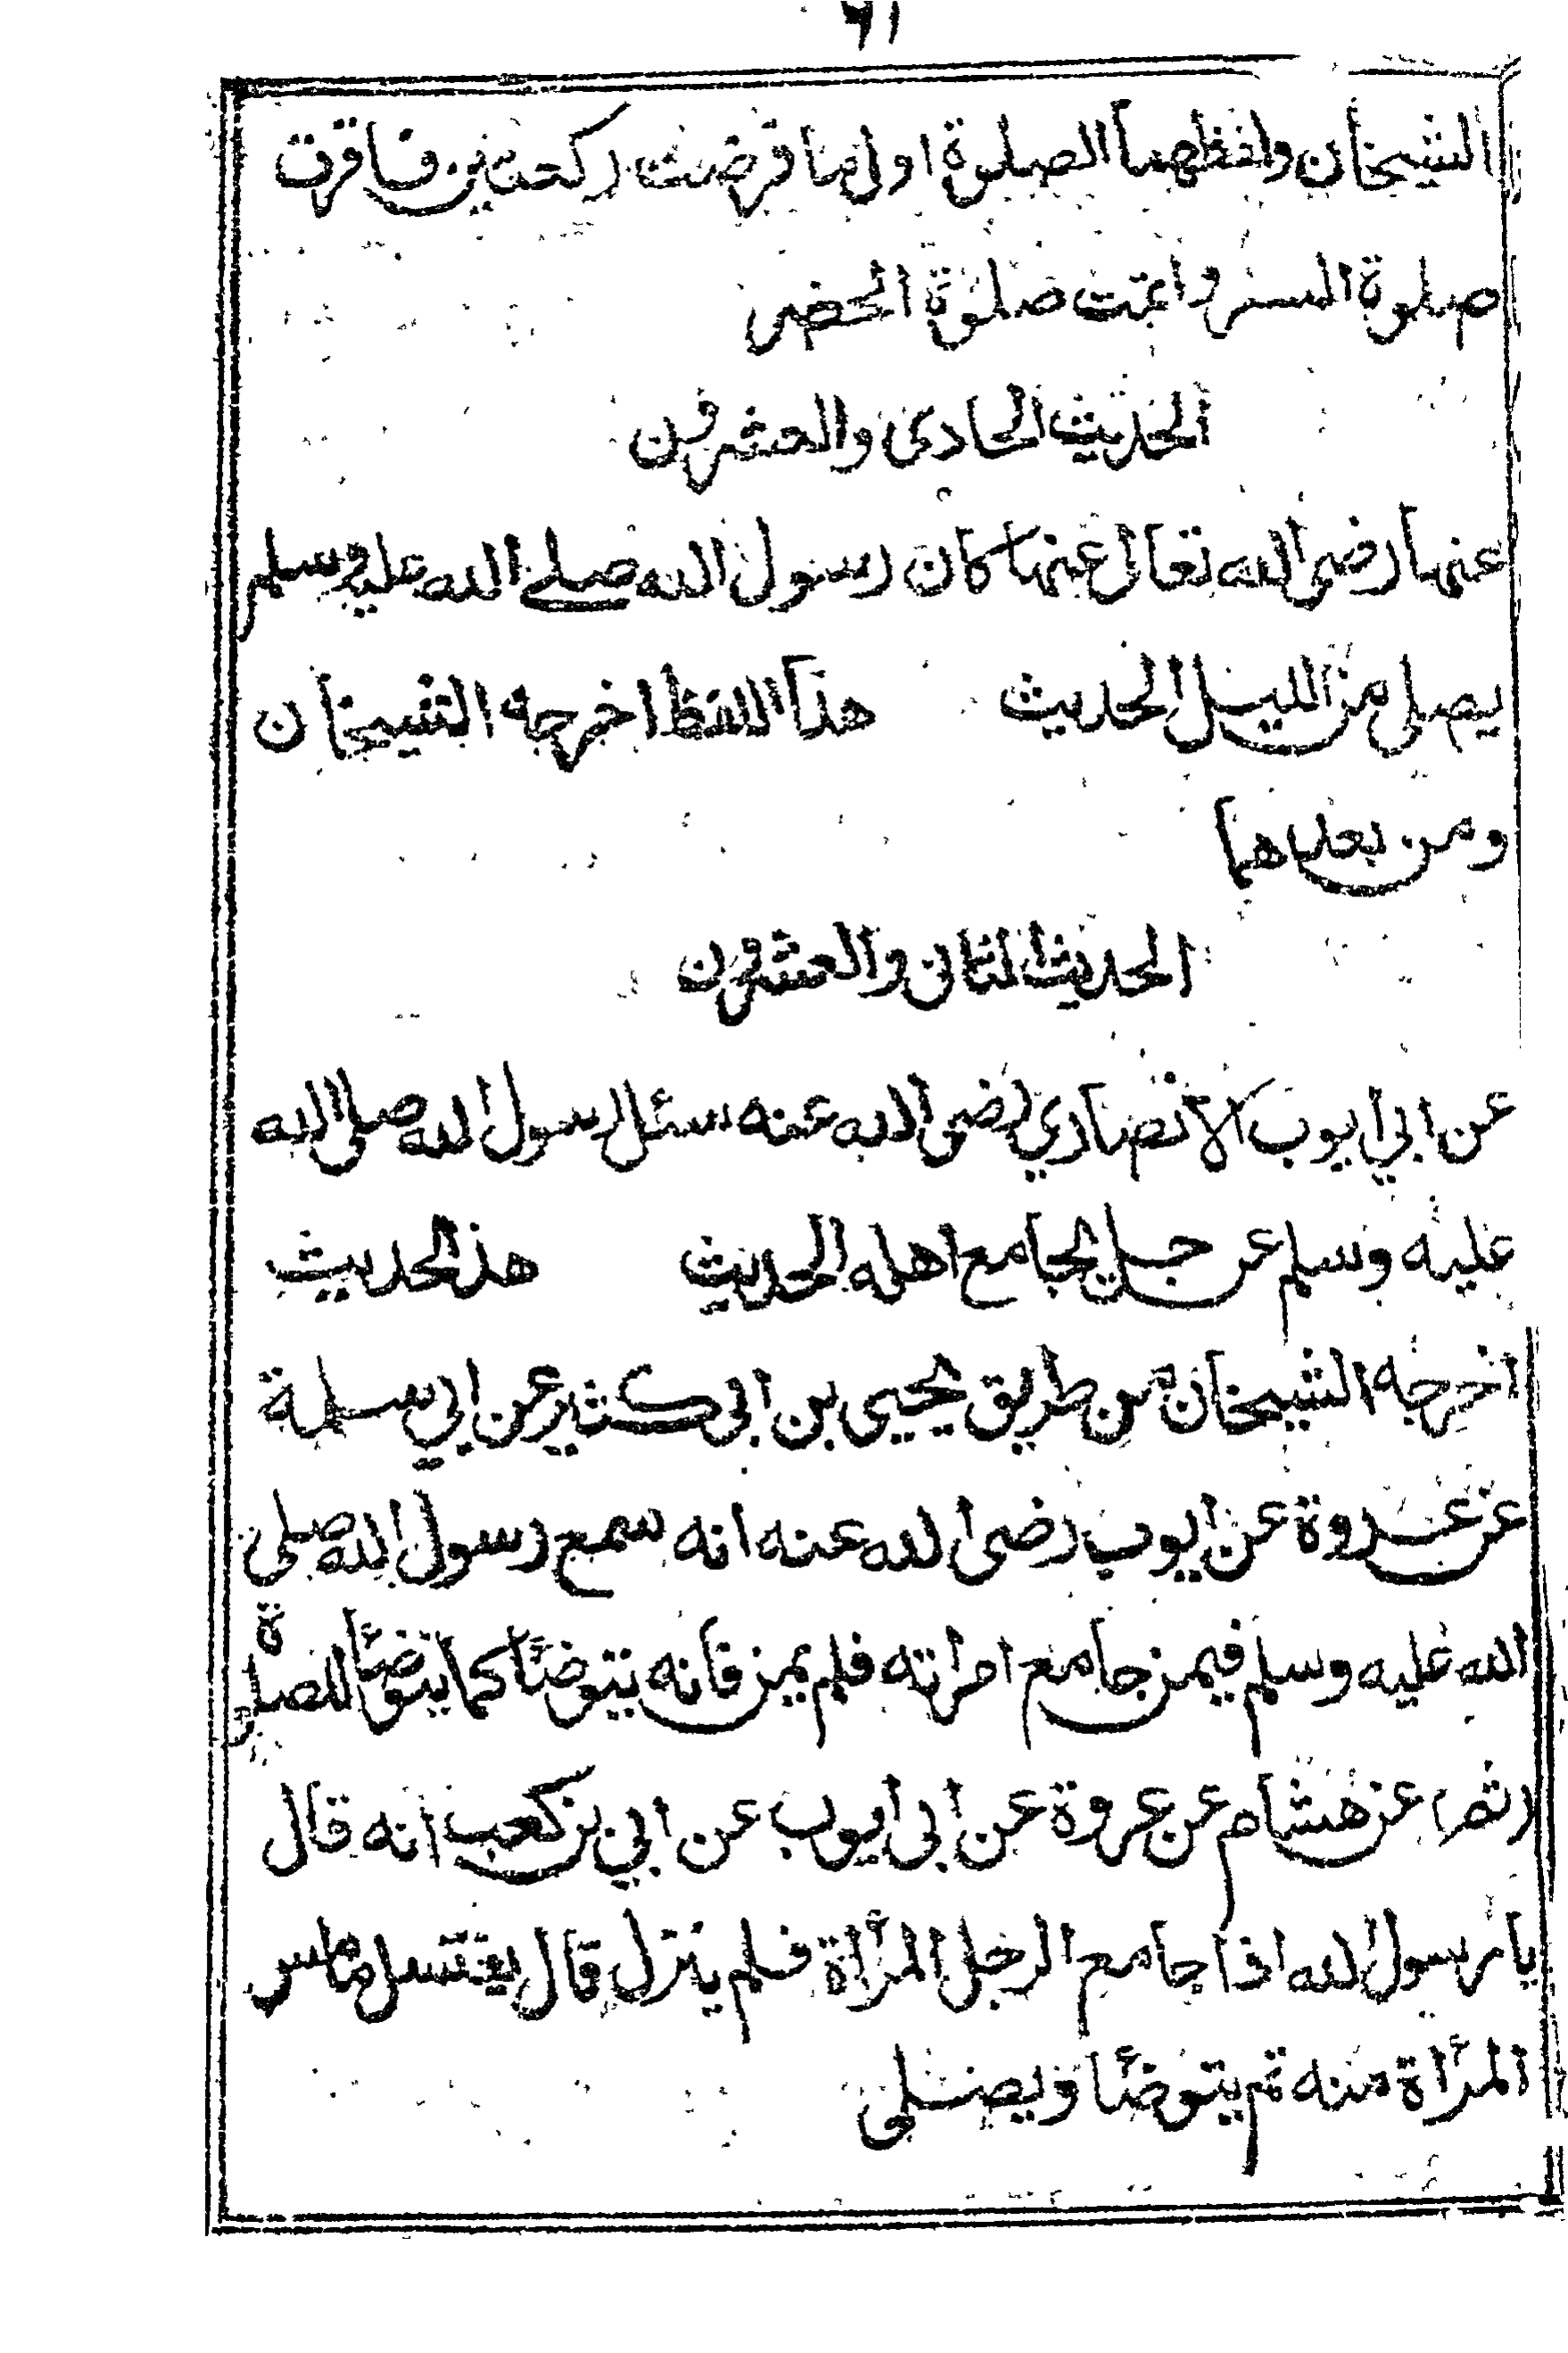 ٦١
الشيخان ولفظهما الصلوة اول ما فرضت ركعتين فاقرت
صلوة السفر واتمت صلوة الحضر
الحديث الحادى والعشرون
عنها رضى الله تعالى عنها كان رسول الله صلى الله عليه وسلم
يصلى من الليل الحديث هذا اللفظ اخرجه الشيخان
ومن بعدهما
الحديث الثانى والعشرون
عن ابي ايوب الانصاري رضى الله عنه سئل رسول الله صلى الله
عليه وسلم عن جل يجامع اهله الحديث هذ الحديث
اخرجه الشيخان من طريق يحيى بن ابى كثير عن ابي سلمة
عن عروة عن ايوب رضى الله عنه انه سمع رسول الله صلى
الله عليه وسلم فيمن جامع امراته فلم يمن فانه يتوضأ كما يتوضأ للصلوة
(ثم) عن هشام عن عروة عن ابى ايوب عن ابي بن كعب انه قال
يا رسول الله اذا جامع الرجل المرأة فلم ينزل قال يغتسل ما مس
المرأة منه ثم يتوضأ ويصلى